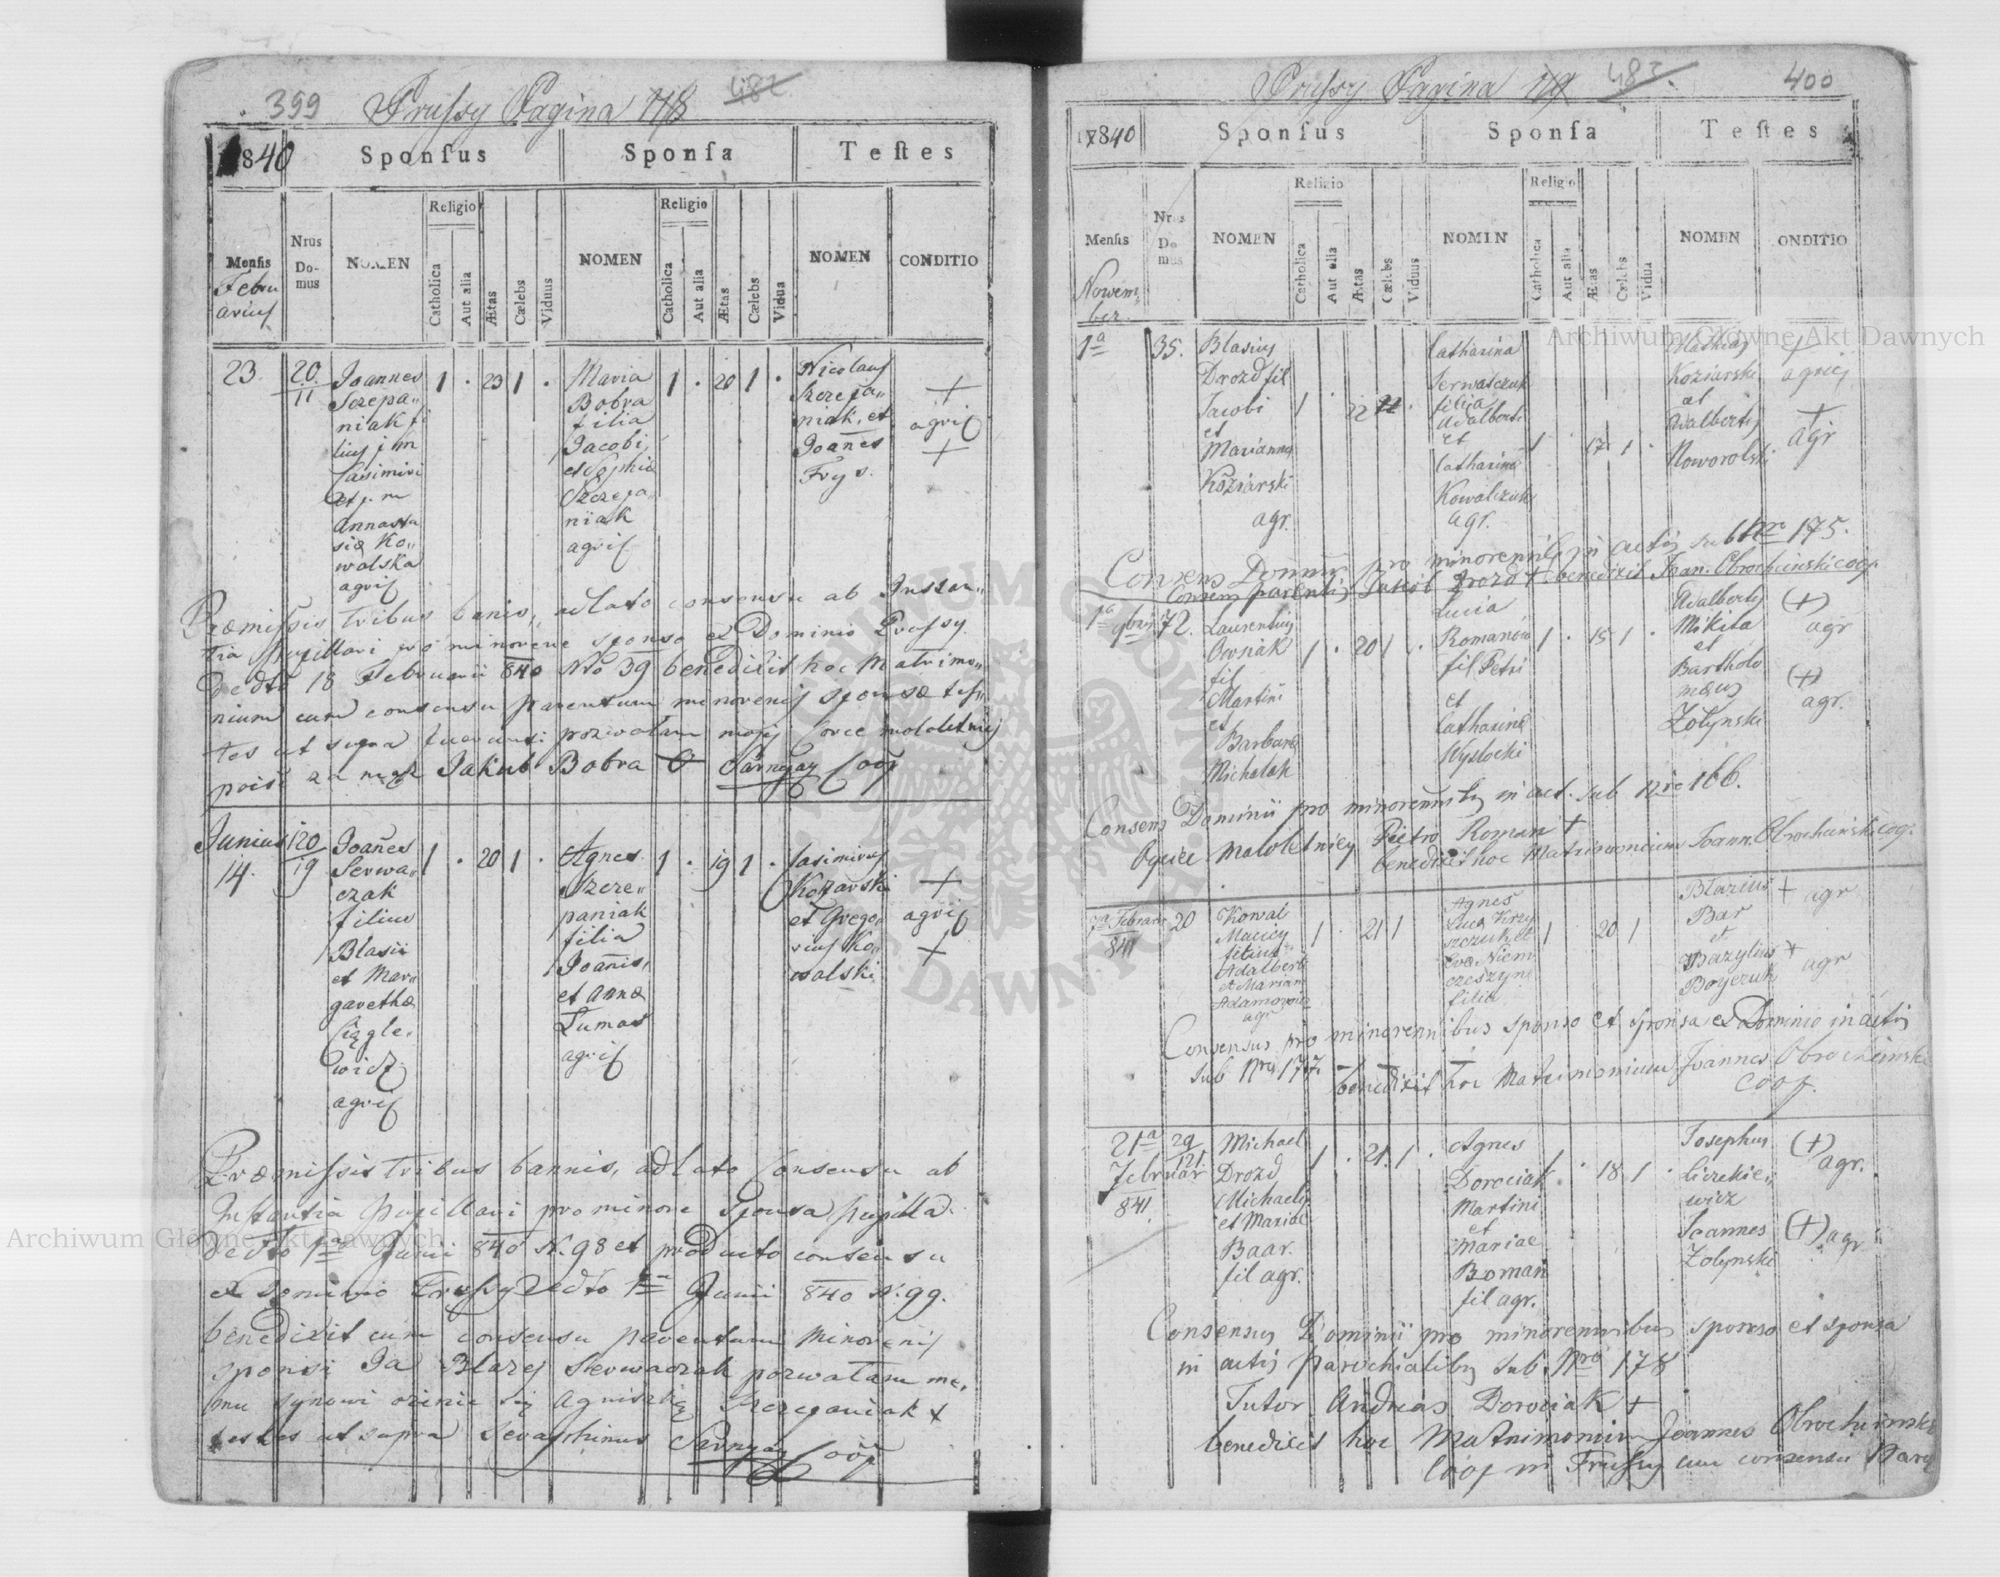 399 Prussy Pagina 118 482
1840 Sponsus Sponsa Testes
Mensis Nrus Domus NOMEN Religio Catholica Aut alia Ætas Cælebs Viduus NOMEN Religio Catholica Aut alia Ætas Cælebs Vidua NOMEN CONDITIO
Febru
arius
23. 20 11
Joannes
Szczepa„
niak fi
lius j m
Casimiri
et p. m
Annasta
siæ Ko„
walska
agric
1 . 23 1 .
Maria
Bobra
filia
Jacobi,
et Sophiæ
Szczepa
niak
agric
1 . 20 1 .
Nicolaus
Szczepa„
niak, et
Joañes
Frys.
+
agric
+
Præmissis tribus banis, adlato consensu ab Instan„
tia pupillari pro minorene sponso et Dominio Prussy
dedto 18 Februarii 840 Nro 39 benedixit hoc Matrimo„
nium cum consensu parentum minorenis sponsæ tes„
tes ut supra fuerunt: pozwalam mojej corce malolетniej
pojść za mąż Jakub Bobra + Sarnejay Coop
Junius
14.
120 19
Joañes
Serwa„
czak
filius
Blasii
et Mar„
garethæ
Cięgle„
wicz
agric
1 . 20 1 .
Agnes
Szcze„
paniak
filia
Joañis,
et Annæ
Tumas
agric
1 . 19 1 .
Casimirus
Kozarski
et Grego„
rius Ko„
walski
+
agric
+
Præmissis tribus bannis, adlato Consensu ab
Instantia pupillari pro minore sponsa pupilla
dedto 1ma Junii 840 N. 98 et producto consensu
ex Dominio Prussy dedto 1ma Junii 840 N. 99.
benedixit cum consensu parentum minorenis
sponsi Ja Blazej Serwaczak pozwalam me„
mu synowi ożenić się Agniszką Szczepaniak +
testes ut supra Seraphinus Sarnejay Coop
Prussy Pagina 119 483 400
1840 Sponsus Sponsa Testes
Mensis Nrus Domus NOMEN Religio Catholica Aut alia Ætas Cælebs Viduus NOMEN Religio Catholica Aut alia Ætas Cælebs Vidua NOMEN ONDITIO
Novem„
ber.
1a 35.
Blasius
Drozd fil
Jacobi
et
Marianna
Koziarski
agr.
1 . 22
Catharina
Serwatczuk
filia
Adalberti
et
Catharina
Kowalczuk
agr.
1 . 17 1 .
Mathias
Koziarski
et
Adalbertus
Noworolski
+
agric
+
agr
Consens Dominii pro minorennibus in actis sub Nro 175.
Consens parentis Jakob Drozd + benedixit Joan. Obrochinski coop
1a 9bris 72.
Laurentius
Owsiak
fil
Martini
et
Barbara
Michalak
1 . 20 1 .
Lucia
Romanów
fil Petri
et
Catharina
Wysłocki
1 . 15 1 .
Adalbertus
Mikita
et
Bartholo
mæus
Zołynski
(+)
agr
(+)
agr.
Consens Dominii pro minorennibus in act. sub Nro 166.
Oyciec Maloletniey Pietro Roman +
benedixit hoc Matrimonium Joann. Obrochinski coop.
7a Februar
841
20
Kowal
Maciey
filius
Adalberti
et Marian
Adamowicz
agr
1 . 21 1
Agnes
Luca Krzy
szczuk et
Eva Niem
czeszyn
filia
1 . 20 1
Blazius
Bar
et
Bazylius
Boyczuk
+ agr
+ agr
Consensus pro minorennibus sponso et sponsa ex Dominio in actis
sub Nro 177. benedixit hoc Matrimonium Joannes Obrochinski
coop.
21a
Februar
841.
29 121
Michael
Drozd
Michaelis
et Mariae
Baar.
fil agr.
1 . 21. 1 .
Agnes
Dorociak
Martini
et
Mariae
Roman
fil agr.
1 . 18 1 .
Josephus
Ciczkie„
wicz
Joannes
Zolynski
(+)
agr.
(+) agr
Consensus Dominii pro minorennibus sponso et sponsa
in actis parochialibus sub Nro 178
Tutor Andreas Dorociak +
benedixit hoc Matrimonium Joannes Obrochinski
Coop in Prussy cum consensu
Archiwum Główne Akt Dawnych
Archiwum Główne Akt Dawnych
ARCHIWUM GŁÓWNE AKT DAWNYCH